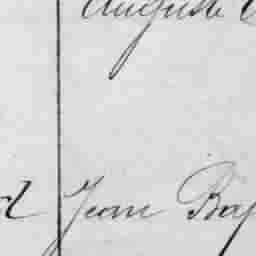 Auguste
Jean Bap